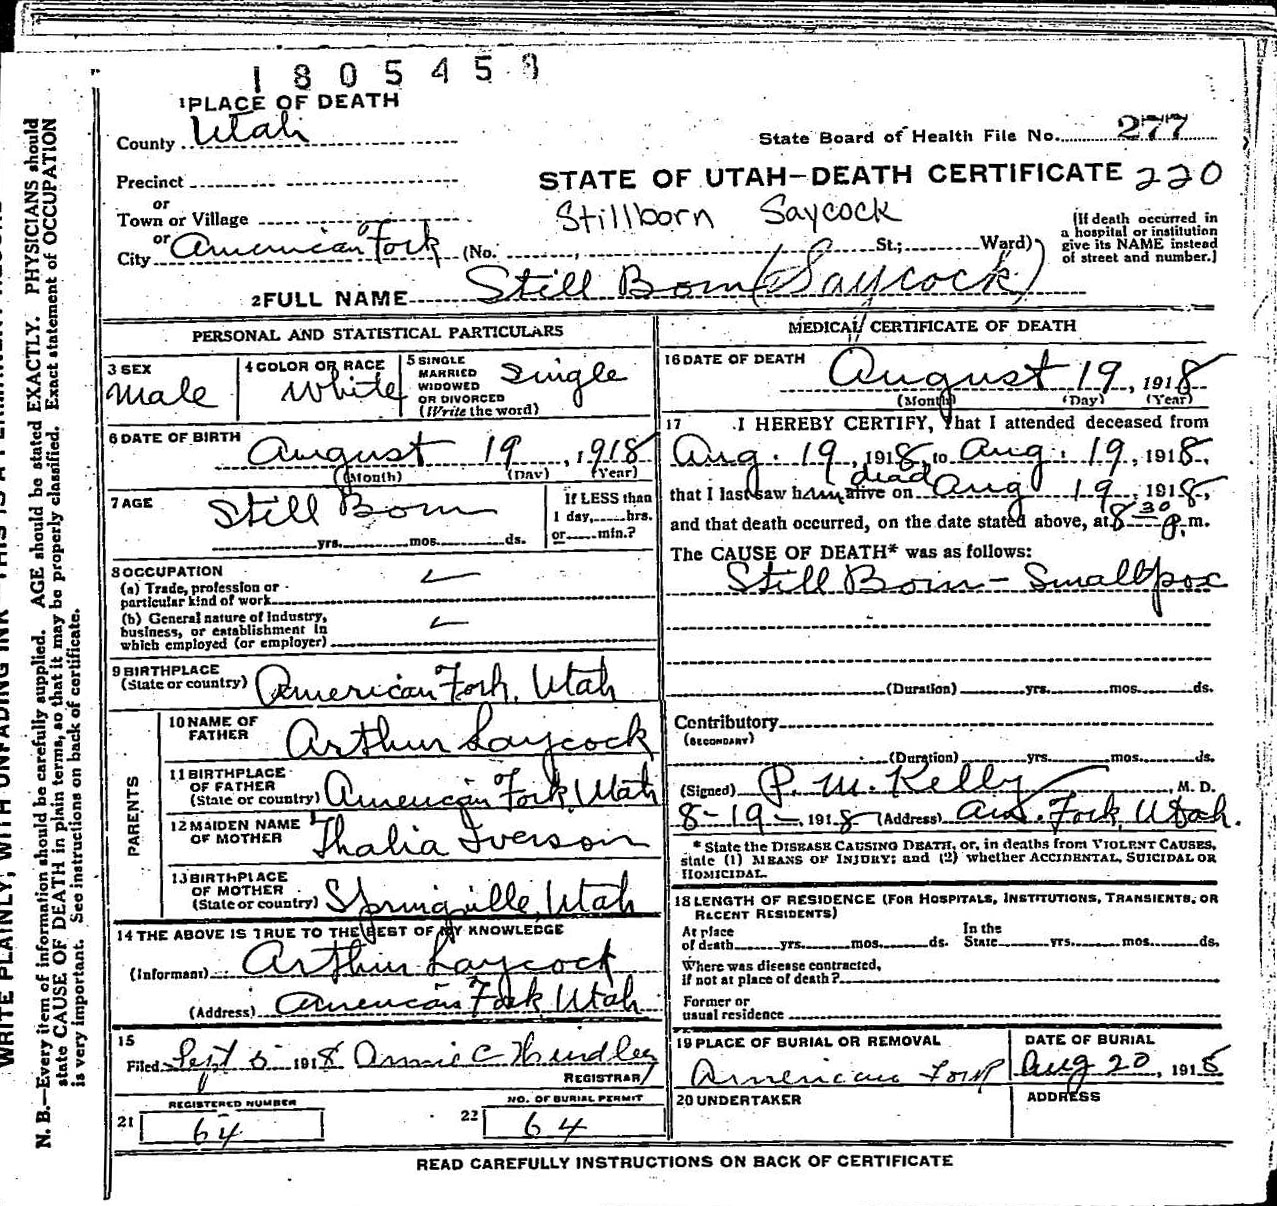 1805458
1 PLACE OF DEATH
County Utah
State Board of Health File No. 277
Precinct
or
Town or Village
or
City American Fork (No. St.; Ward)
STATE OF UTAH—DEATH CERTIFICATE 220
Stillborn Saycock
(If death occurred in
a hospital or institution
give its NAME instead
of street and number.)
2 FULL NAME Still Born (Saycock)
PERSONAL AND STATISTICAL PARTICULARS
3 SEX
Male
4 COLOR OR RACE
White
5 SINGLE
MARRIED
WIDOWED
OR DIVORCED
(Write the word)
Single
6 DATE OF BIRTH
August 19, 1918
(Month) (Day) (Year)
7 AGE
Still Born
yrs. mos. ds.
If LESS than
1 day, hrs.
or min.?
8 OCCUPATION
(a) Trade, profession or
particular kind of work
(b) General nature of industry,
business, or establishment in
which employed (or employer)
9 BIRTHPLACE
(State or country) American Fork, Utah
PARENTS
10 NAME OF
FATHER Arthur Laycock
11 BIRTHPLACE
OF FATHER
(State or country) American Fork, Utah
12 MAIDEN NAME
OF MOTHER Thalia Iverson
13 BIRTHPLACE
OF MOTHER
(State or country) Springville, Utah
14 THE ABOVE IS TRUE TO THE BEST OF MY KNOWLEDGE
(Informant) Arthur Laycock
(Address) American Fork Utah
15
Filed Sept 5 1918 Annie C
REGISTRAR
REGISTERED NUMBER
21 64
NO. OF BURIAL PERMIT
22 64
MEDICAL CERTIFICATE OF DEATH
16 DATE OF DEATH
August 19, 1918
(Month) (Day) (Year)
17 I HEREBY CERTIFY, That I attended deceased from
Aug. 19, 1918, to Aug. 19, 1918,
dead
that I last saw him alive on Aug 19, 1918,
and that death occurred, on the date stated above, at 8 30 p.m.
The CAUSE OF DEATH* was as follows:
Still Born - Smallpox
(Duration) yrs. mos. ds.
Contributory
(SECONDARY)
(Duration) yrs. mos. ds.
(Signed) P. M. Kelly, M. D.
8-19-, 1918 (Address) Am. Fork, Utah.
* State the DISEASE CAUSING DEATH, or, in deaths from VIOLENT CAUSES,
state (1) MEANS OF INJURY; and (2) whether ACCIDENTAL, SUICIDAL OR
HOMICIDAL.
18 LENGTH OF RESIDENCE (FOR HOSPITALS, INSTITUTIONS, TRANSIENTS, OR
RECENT RESIDENTS)
At place
of death yrs. mos. ds.
In the
State yrs. mos. ds.
Where was disease contracted,
if not at place of death?
Former or
usual residence
19 PLACE OF BURIAL OR REMOVAL
American Fork
DATE OF BURIAL
Aug 20, 1918
20 UNDERTAKER
ADDRESS
READ CAREFULLY INSTRUCTIONS ON BACK OF CERTIFICATE
WRITE PLAINLY, WITH UNFADING INK—THIS IS A PERMANENT RECORD
N. B.—Every item of information should be carefully supplied. AGE should be stated EXACTLY. PHYSICIANS should
state CAUSE OF DEATH in plain terms, so that it may be properly classified. Exact statement of OCCUPATION
is very important. See instructions on back of certificate.